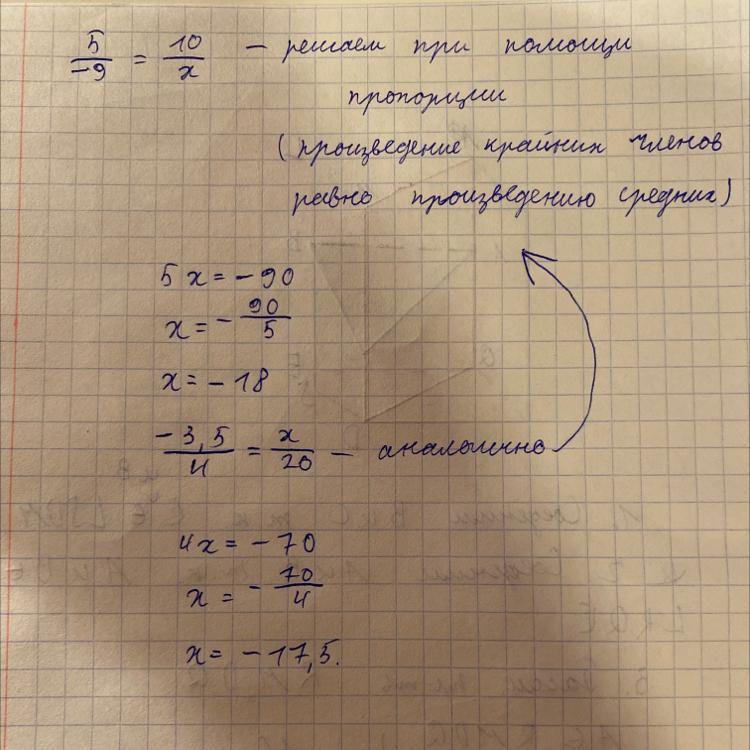 5/-9 = 10/x — решаем при помощи
пропорции
(произведение крайних членов
равно произведению средних)
5x = -90
x = - 90/5
x = -18
-3,5/4 = x/20 — аналогично
4x = -70
x = - 70/4
x = -17,5.